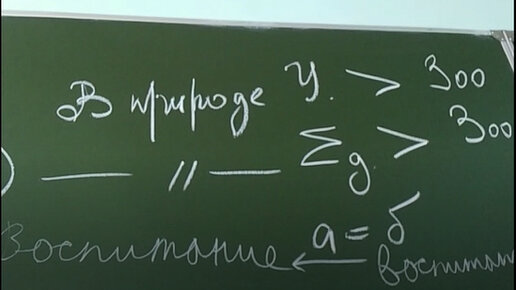 В природе У. > 300
) — 〃 — Σд. > 300
а = б
Воспитание ← воспитан